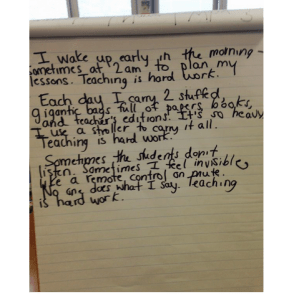 I wake up early in the morning -
sometimes at 2am to plan my
lessons. Teaching is hard work.
Each day I carry 2 stuffed,
gigantic bags full of papers, books,
and teacher's editions. It's so heavy
I use a stroller to carry it all.
Teaching is hard work.
Sometimes the students don't
listen. Sometimes I feel invisible,
like a remote control on mute.
No one does what I say. Teaching
is hard work.